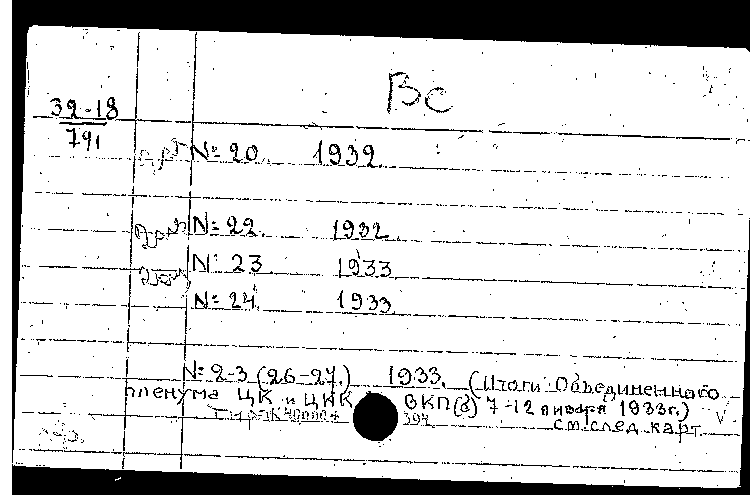 Вс
39-18
791
№ 20. 1932.
№ 22. 1932.
№ 23 1933
№ 24 1933.
№ 2-3 (26-27.) 1933. (Итоги Объединенного
пленума ЦК и ЦКК ВКП(б) 7-12 января 1933г.)
397
См. след. карт.